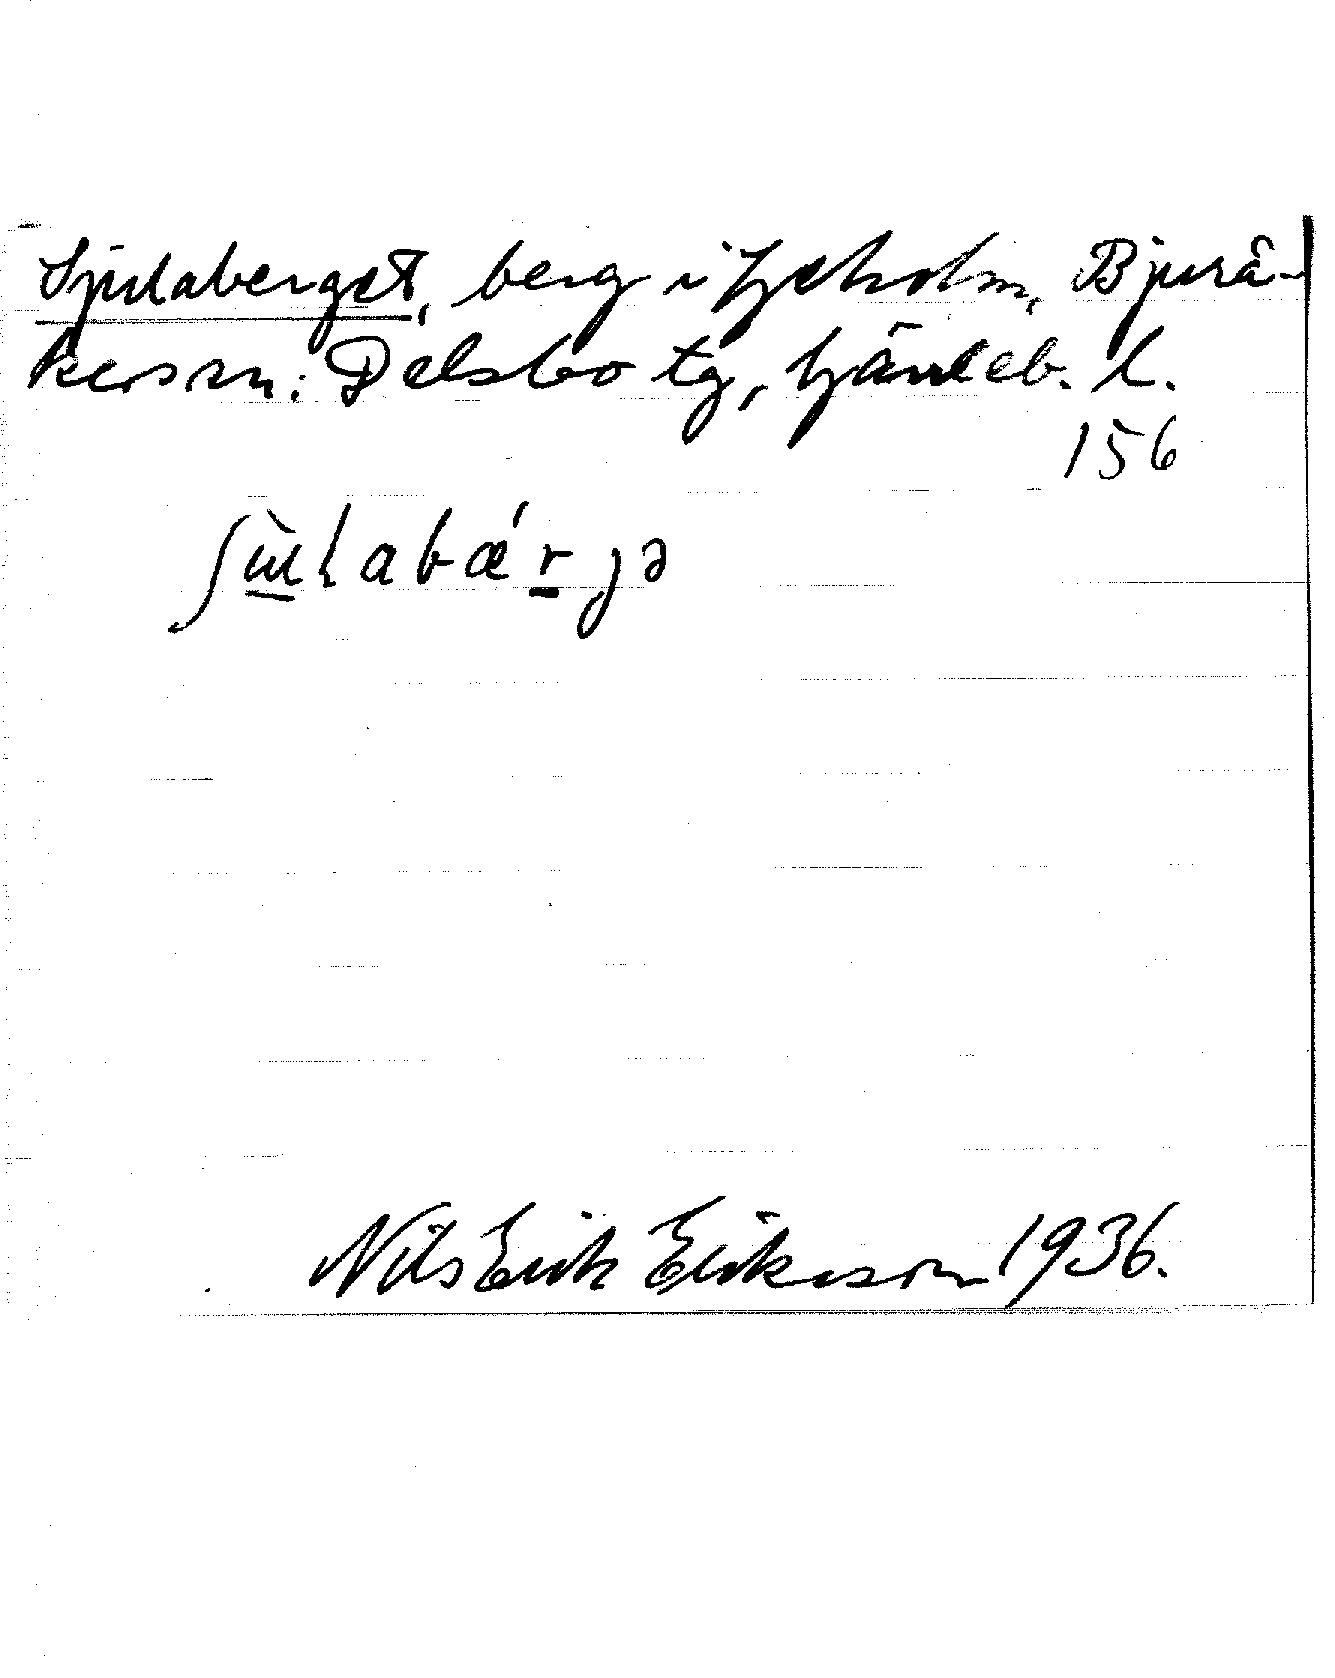 Sjulaberget, berg i Fjeholm, Bjurå-
kers sn: Delsbo tg, Gävleb. l.
156
ʃu̇labǽrjə
Nils Erik Eriksson 1936.